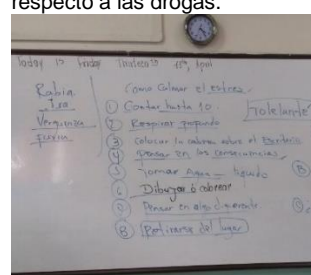 respecto a las drogas.
Today is Friday
Rabia
Ira
Venganza
Furia
Como Calmar el estrez.
① Contar hasta 10.
② Respirar profundo
③ colocar la cabeza sobre el
④ Pensar en las consecuencias.
⑤ Tomar Agua líquido
⑥ Dibujar ó colorear
⑦ Pensar en algo diferente.
⑧ Retirarse del lugar
Tolerante